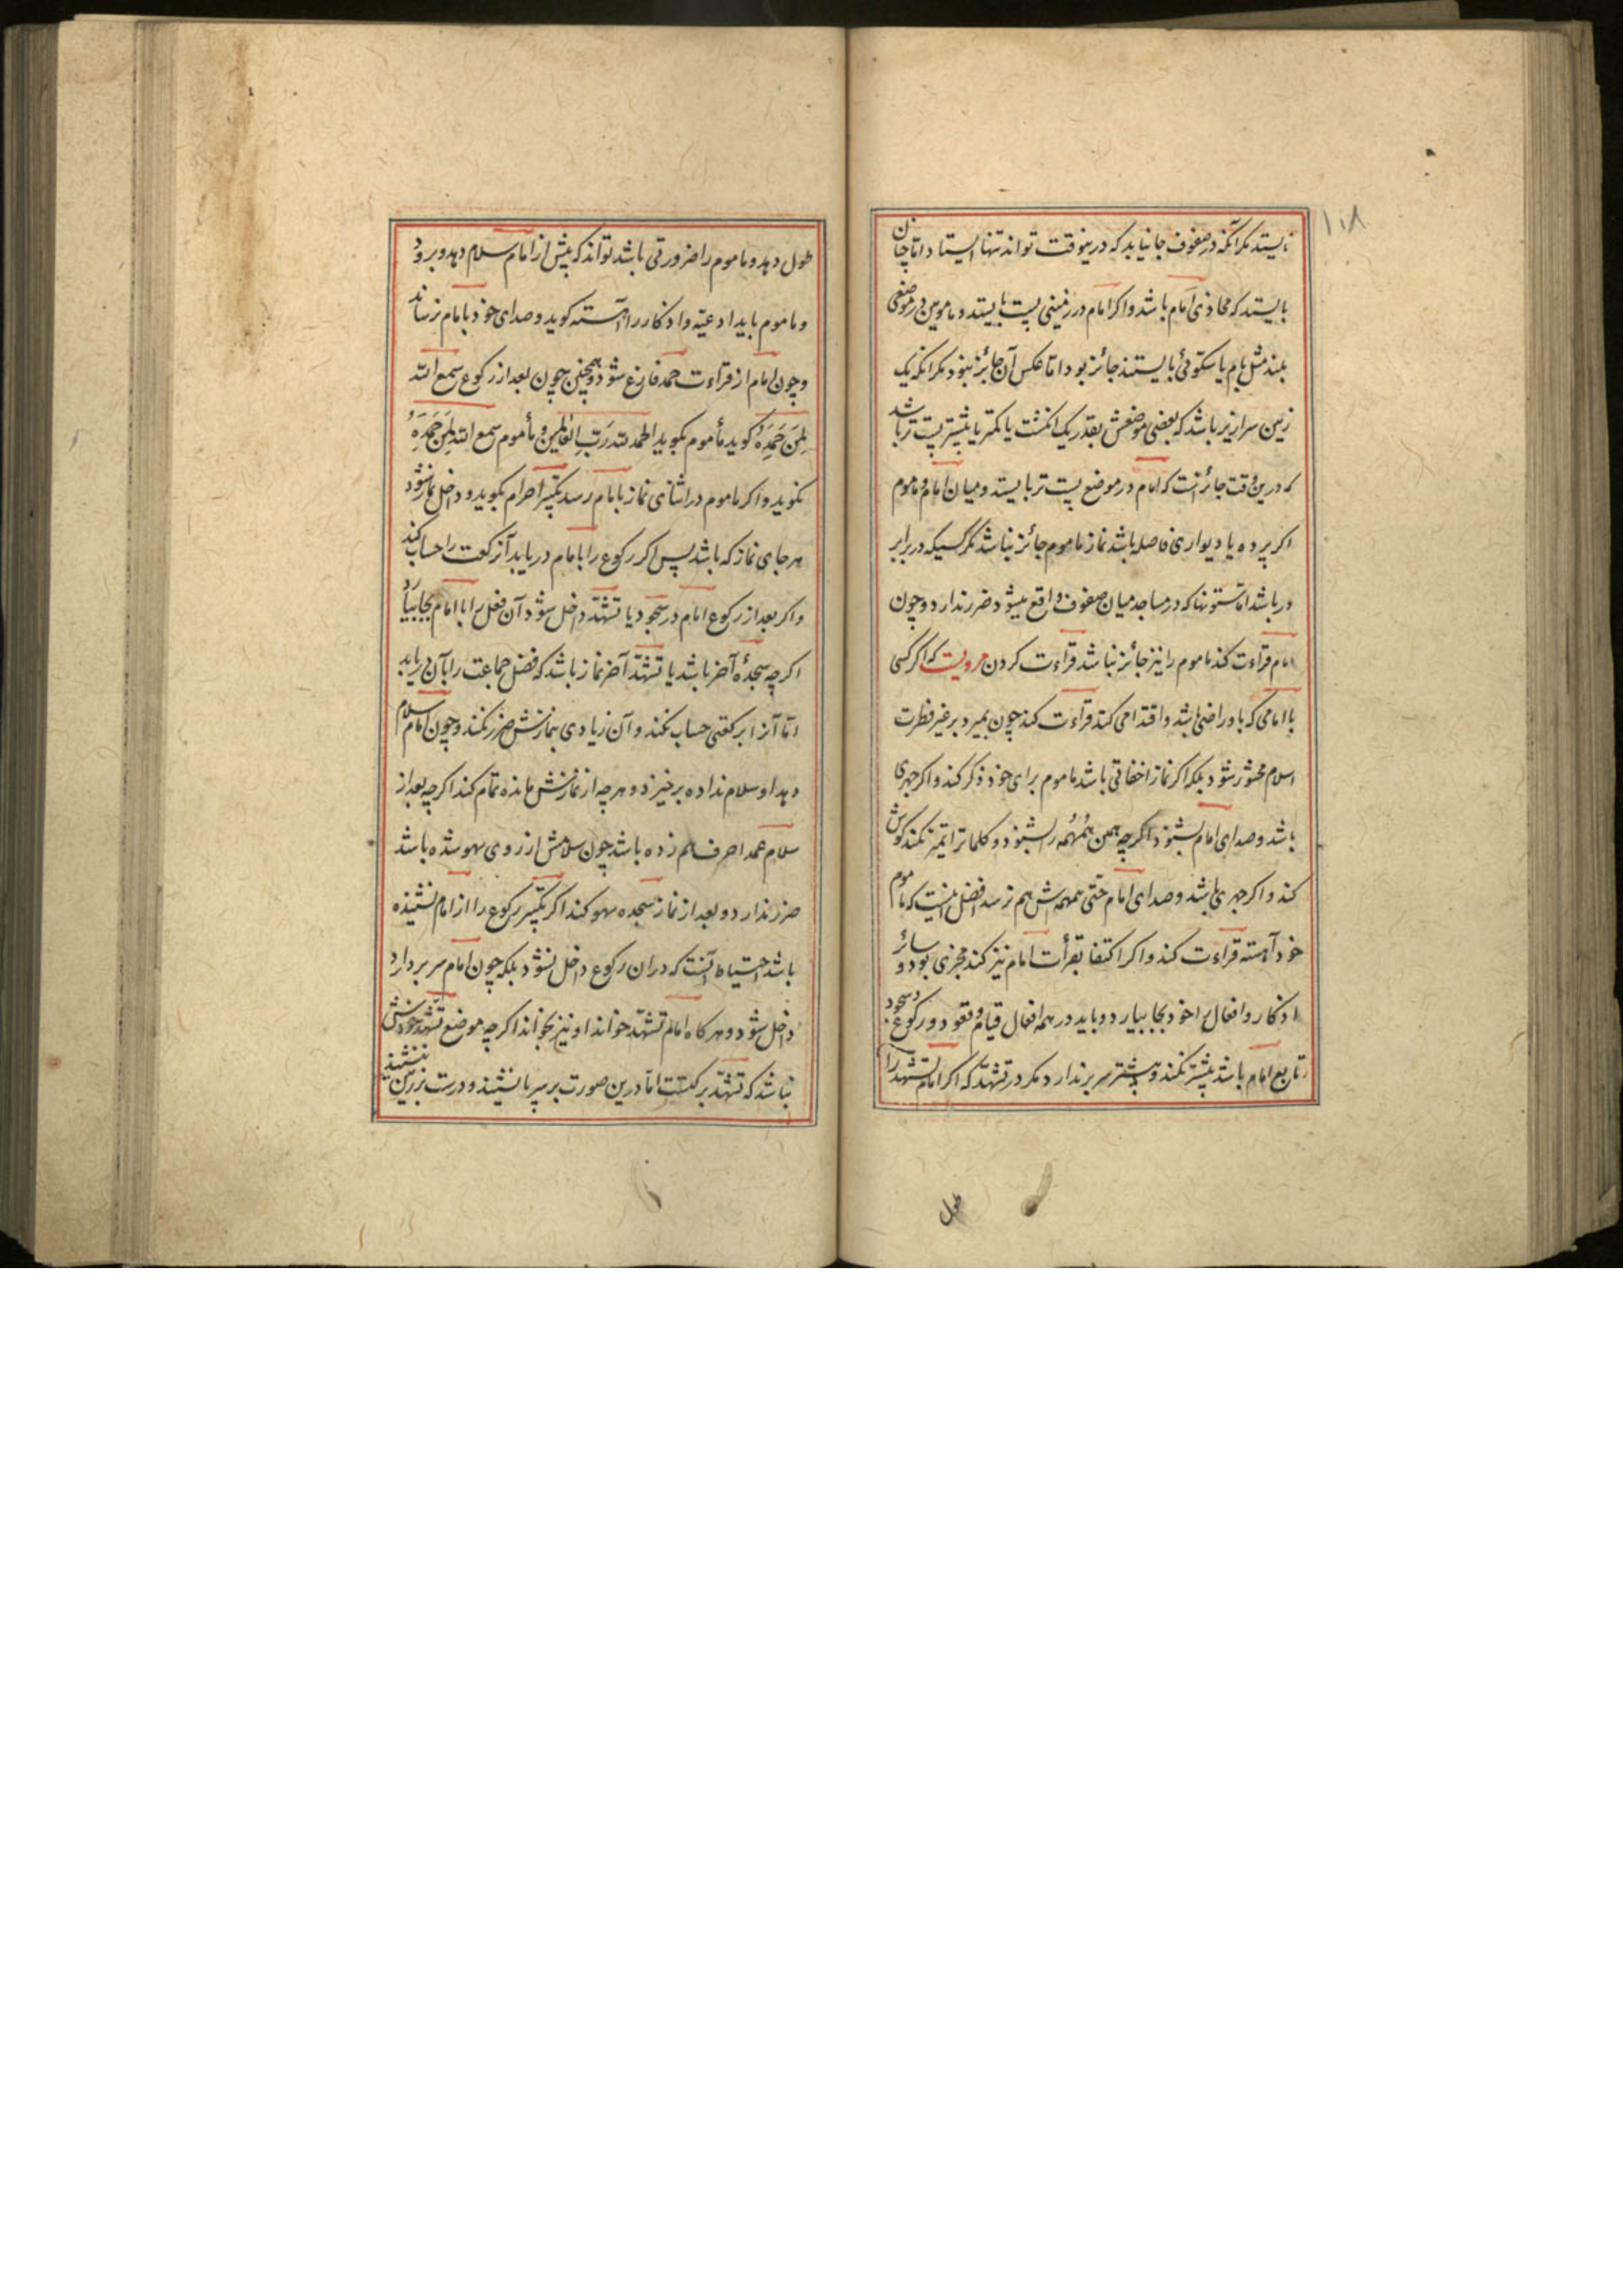 ۱۱۸
نایستد مکر آنکه در صفوف جا نیابد که درینوقت تواند تنها ایستاد اما چنان
بایستد که محاذی امام باشد و اکر امام در زمینی پست بایستد و مامومین در موضعی
بلند مثل بام یا سکوئی بایستند جائز بود اما عکس آن جائز نبود مکر آنکه یک
زمین سرازیر باشد که بعضی موضعش بقدر یک انکشت یا کمتر یا بیشتر پست تر باشد
که درین وقت جائز است که امام در موضع پست تر بایستد و میان امام و ماموم
اکر پرده یا دیواری فاصله باشد نماز ماموم جائز نباشد مکر کسیکه در برابر
در باشد اما ستونها که در مساجد میان صفوف واقع میشود ضرر ندارد و چون
امام قراءت کند ماموم را نیز جائز نباشد قراءت کردن مرویست که اکر کسی
با امامی که باو راضی باشد و اقتدا می کند قراءت کند چون بمیرد بر غیر فطرت
اسلام محشور شود بلکه اکر نماز اخفاتی باشد ماموم برای خود ذکر کند و اکر جهری
باشد و صدای امام بشنود اکرچه همین همهمه را بشنود و کلماترا تمیز نکند کوش
کند و اکر جهری باشد و صدای امام حتی همهمه اش هم نرسد افضل اینست که ماموم
خود آهسته قراءت کند و اکر اکتفا بقرأت امام نیز کند مجزی بود و سائر
اذکار و افعال را خود بجا بیارد و باید در همه افعال قیام و قعود و رکوع و سجود
تابع امام باشد پیشتر نکند و پیشتر سر برندارد مکر در تشهد که اکر امام تشهد را
طول
طول دهد و ماموم را ضرورتی باشد تواند که پیش از امام سلام دهد و برود
و ماموم باید ادعیه و اذکار را آهسته کوید و صدای خود بامام نرساند
و چون امام از قراءت حمد فارغ شود و همچنین چون بعد از رکوع سمع الله
لِمَن حَمِدَهُ کوید مأموم بکوید الحمد لله رَبِّ العٰالَمین و مأموم سمع الله لِمَن حَمِدَهُ
نکوید و اکر ماموم در اثنای نماز بامام رسد تکبیر احرام بکوید و داخل نماز شود
هر جای نماز که باشد پس اکر رکوع را با امام دریابد آنرکعت را حساب کند
و اکر بعد از رکوع امام در سجود یا تشهد داخل شود آن فعل را با امام بجا بیارد
اکرچه سجدهٔ آخر باشد یا تشهد آخر نماز باشد که فضل جماعت را بآن دریابد
اما آنرا برکعتی حساب نکند و آن زیادی بنمازش ضرر نکند و چون امام سلام
دهد او سلام نداده برخیزد و هرچه از نمازش مانده تمام کند اکرچه بعد از
سلام عمدا حرف هم زده باشد چون سلامش از روی سهو شده باشد
ضرر ندارد و بعد از نماز سجده سهو کند اکر تکبیر رکوع را از امام نشنیده
باشد احتیاط آنست که در ان رکوع داخل نشود بلکه چون امام سر بردارد
داخل شود و هر کاه امام تشهد خواند او نیز بخواند اکرچه موضع تشهد خودش
نباشد که تشهد برکتست اما درین صورت بر سر پا نشیند و درست بر زمین ننشیند